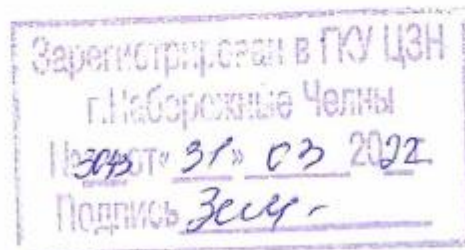 Зарегистрирован в ГКУ ЦЗН
г.Набережные Челны
№ 3043 от « 31 » 03 2022
Подпись